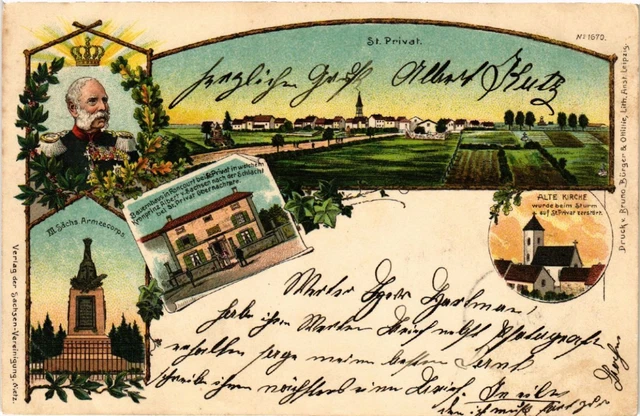 St. Privat.
No 1670.
herzlichen Gruß Albert Kutz
Druck v. Bruno Bürger & Ottilie, Lith. Anst. Leipzig.
Bauernhaus in Roncourt bei St. Privat in welchem
Kronprinz Albert v. Sachsen nach der Schlacht
bei St. Privat übernachtete.
ALTE KIRCHE
wurde beim Sturm
auf St. Privat zerstört.
XII. Sächs. Armeecorps.
Verlag der Sachsen-Vereinigung, Metz.
Werter Herr Hartman,
habe ihren Werten Brief nebst Photografie
erhalten sage meinen besten Dank
schreibe ihnen nächstens einen Brief. In eile
den ich muß